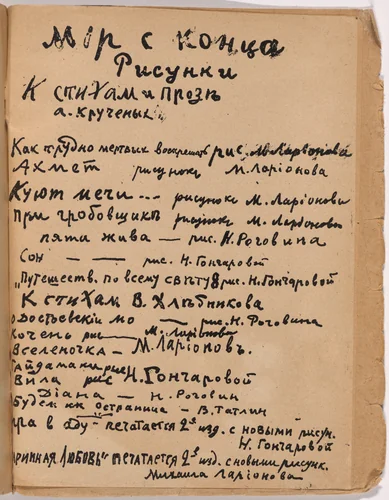 Мір с конца
Рисунки
К стихам и прозѣ
а. крученых
Как трудно мертвых воскрешать рис. М. Ларіонова
Ахмет рисунок М. Ларіонова
Куют мечи... рисунок М. Ларіонова
При гробовщикѣ рисунок М. Ларіонова
пята жива — рис. Н. Роговина
Сон — — рис. Н. Гончаровой
„Путешеств. по всему свѣту" рис. Н. Гончаровой
К стихам В. Хлѣбникова
о Достоевскій мо — рис. Н. Роговина
кочень рис — М. Ларіонова
Вселеночка — М. Ларіоновъ.
айдамаки рис
Вила рис Н. Гончаровой
Діана — Н. Роговин
Будем ик страница — В. Татлин
гра в аду" — печатается 2ᵉ изд. с новыми рисун.
Н. Гончаровой
аринная Любовь" печатается 2ᵉ изд. с новыми рисунк.
Михаила Ларіонова